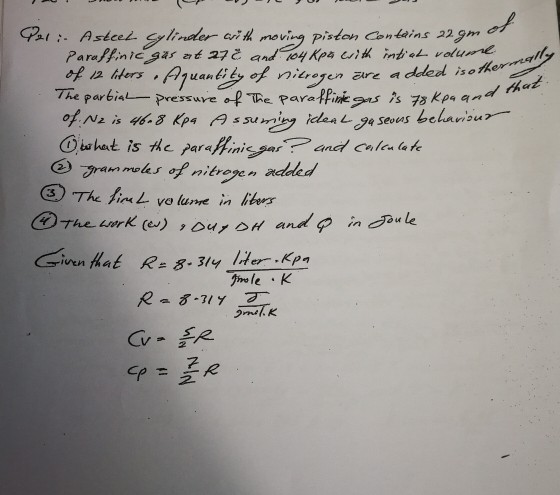 P21:- A steel cylinder with moving piston contains 22 gm of
Paraffinic gas at 27°C and 104 Kpa with intial volume
of 12 liters, A quantity of nitrogen are added isothermally
The partial pressure of The paraffinic gas is 78 Kpa and that
of N2 is 46.8 Kpa Assuming ideal gaseous behaviour
① what is the paraffinic gas? and calculate
② grammoles of nitrogen added
③ The final volume in liters
④ The work (w), ΔU, ΔH and Q in Joule
Given that R = 8.314 liter.Kpa / gmole.K
R = 8.314 J / gmol.K
Cv = 5/2 R
Cp = 7/2 R